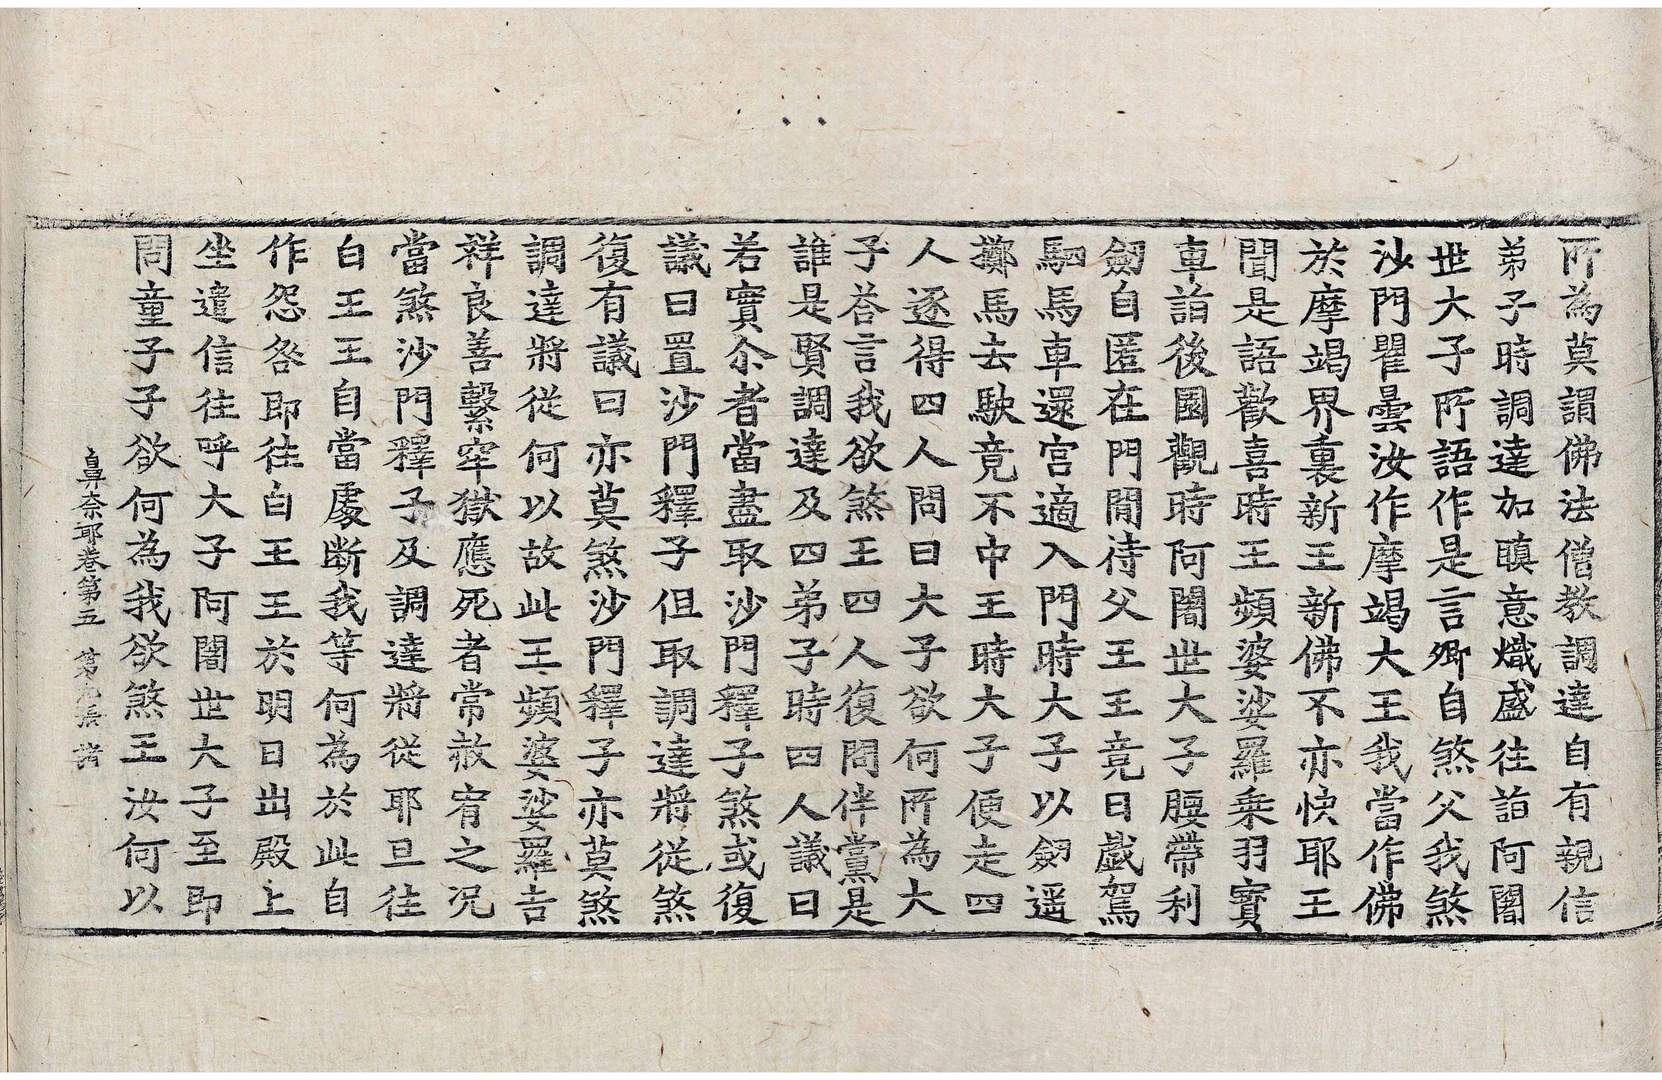 所為莫謂佛法僧教調達自有親信
弟子時調達加瞋意熾盛往詣阿闍
世大子所語作是言卿自煞父我煞
沙門瞿曇汝作摩竭大王我當作佛
於摩竭界裏新王新佛不亦快耶王
聞是語歡喜時王頻婆娑羅乘羽寶
車詣後園觀時阿闍世大子腰帶利
劒自匿在門閒待父王王竟日戯駕
駟馬車還宮適入門時大子以劒遥
擲馬去駃竟不中王時大子便走四
人逐得四人問曰大子欲何所為大
子荅言我欲煞王四人復問伴黨是
誰是賢調達及四弟子時四人議曰
若實尒者當盡取沙門釋子煞或復
議曰置沙門釋子但取調達將從煞
復有議曰亦莫煞沙門釋子亦莫煞
調達將從何以故此王頻婆娑羅吉
祥良善繫窂獄應死者常赦宥之况
當煞沙門釋子及調達將從耶旦往
白王王自當處斷我等何為於此自
作怨咎即往白王王於明日出殿上
坐遣信往呼大子阿闍世大子至即
問童子子欲何為我欲煞王汝何以
鼻奈耶卷第五　第九張　諸